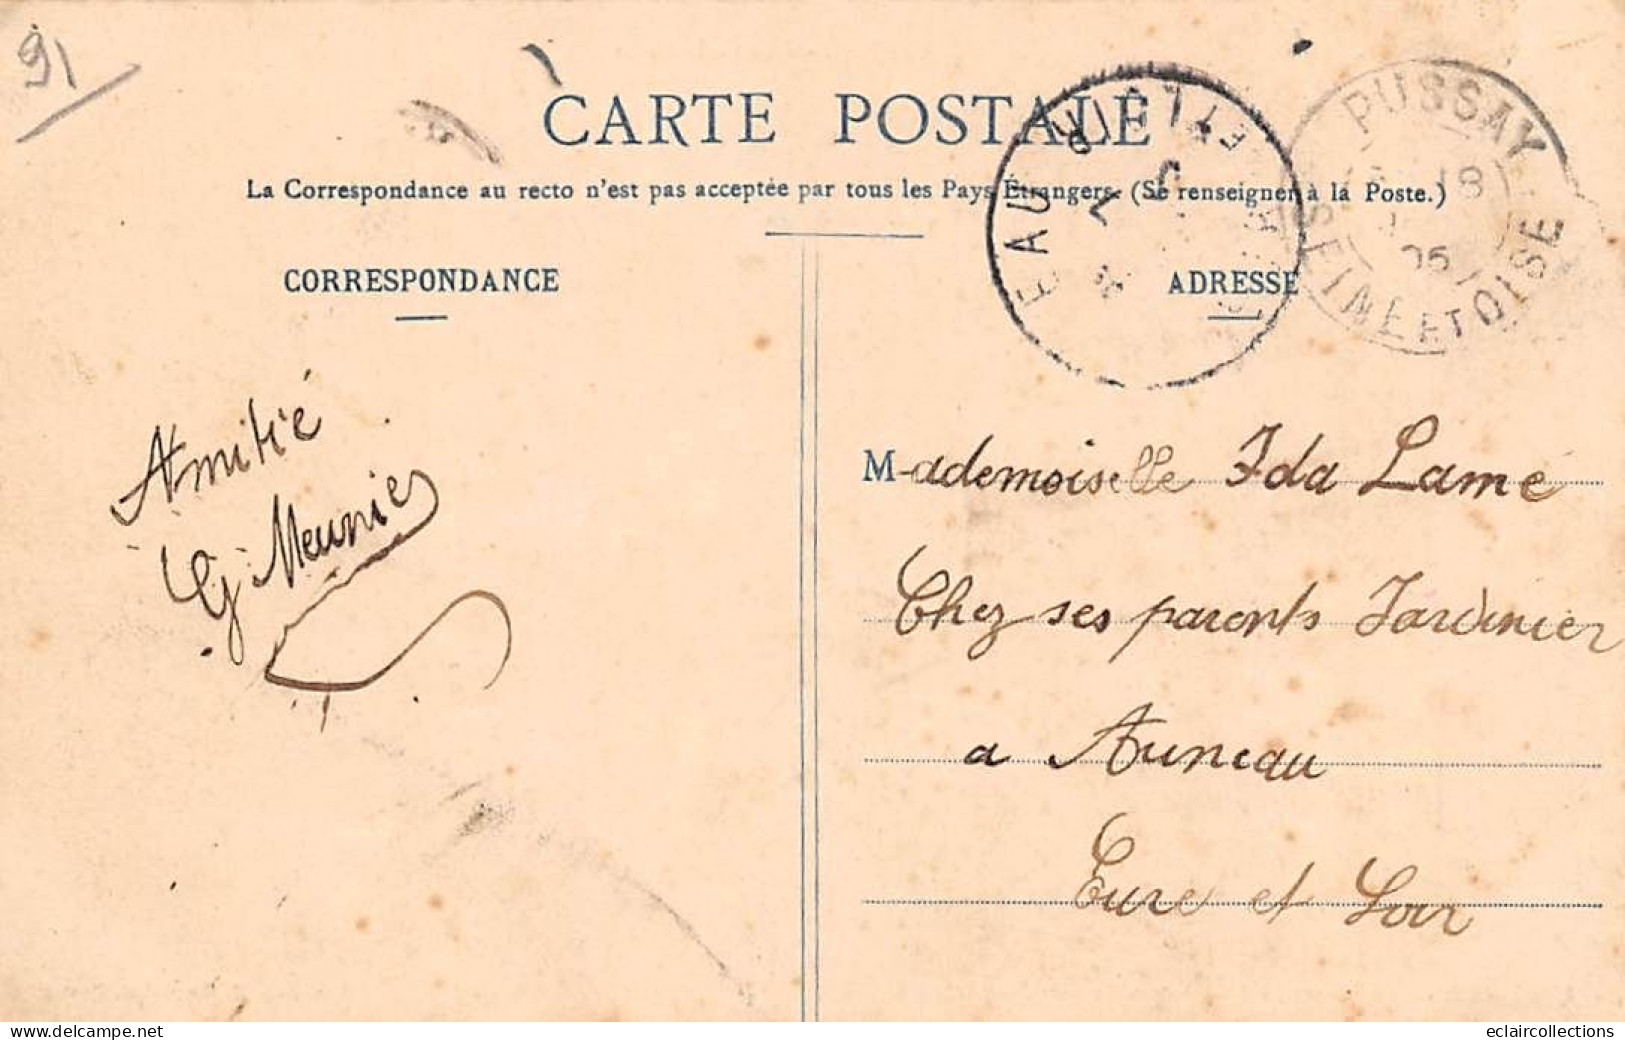 91
CARTE POSTALE
La Correspondance au recto n'est pas acceptée par tous les Pays Étrangers. (Se renseigner à la Poste.)
CORRESPONDANCE
ADRESSE
PUSSAY
18
05
SEINE ET OISE
EAU
Amitié
G. Meunier
Mademoiselle Ida Lamé
Chez ses parents Jardinier
a Auneau
Eure et Loir
www.delcampe.net
eclaircollections